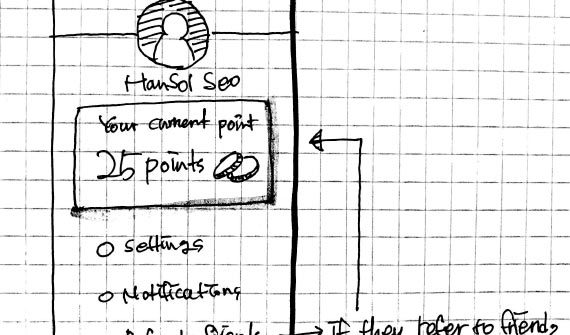 HanSol Seo
Your current point
25 points
Settings
Notifications
If they refer to friends